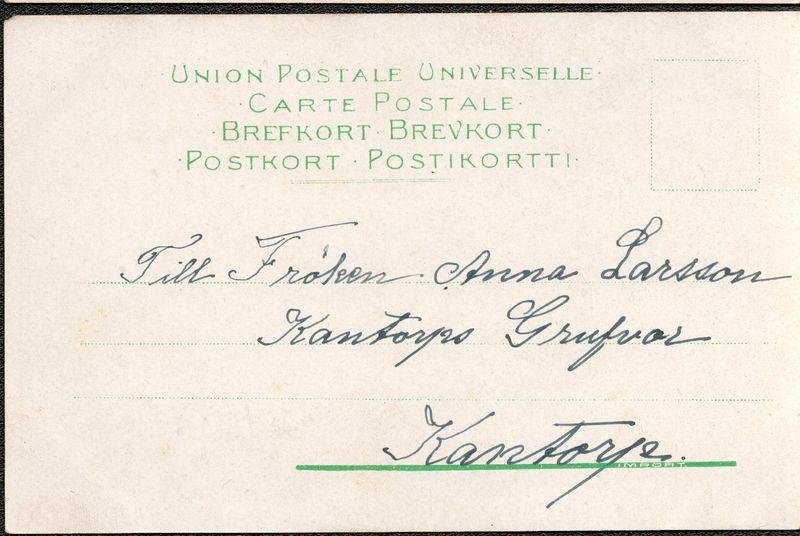 ·UNION POSTALE UNIVERSELLE·
·CARTE POSTALE·
·BREFKORT·BREVKORT·
·POSTKORT·POSTIKORTTI·
Till Fröken Anna Larsson
Kantorps Grufvor
Kantorp.
IMPORT.